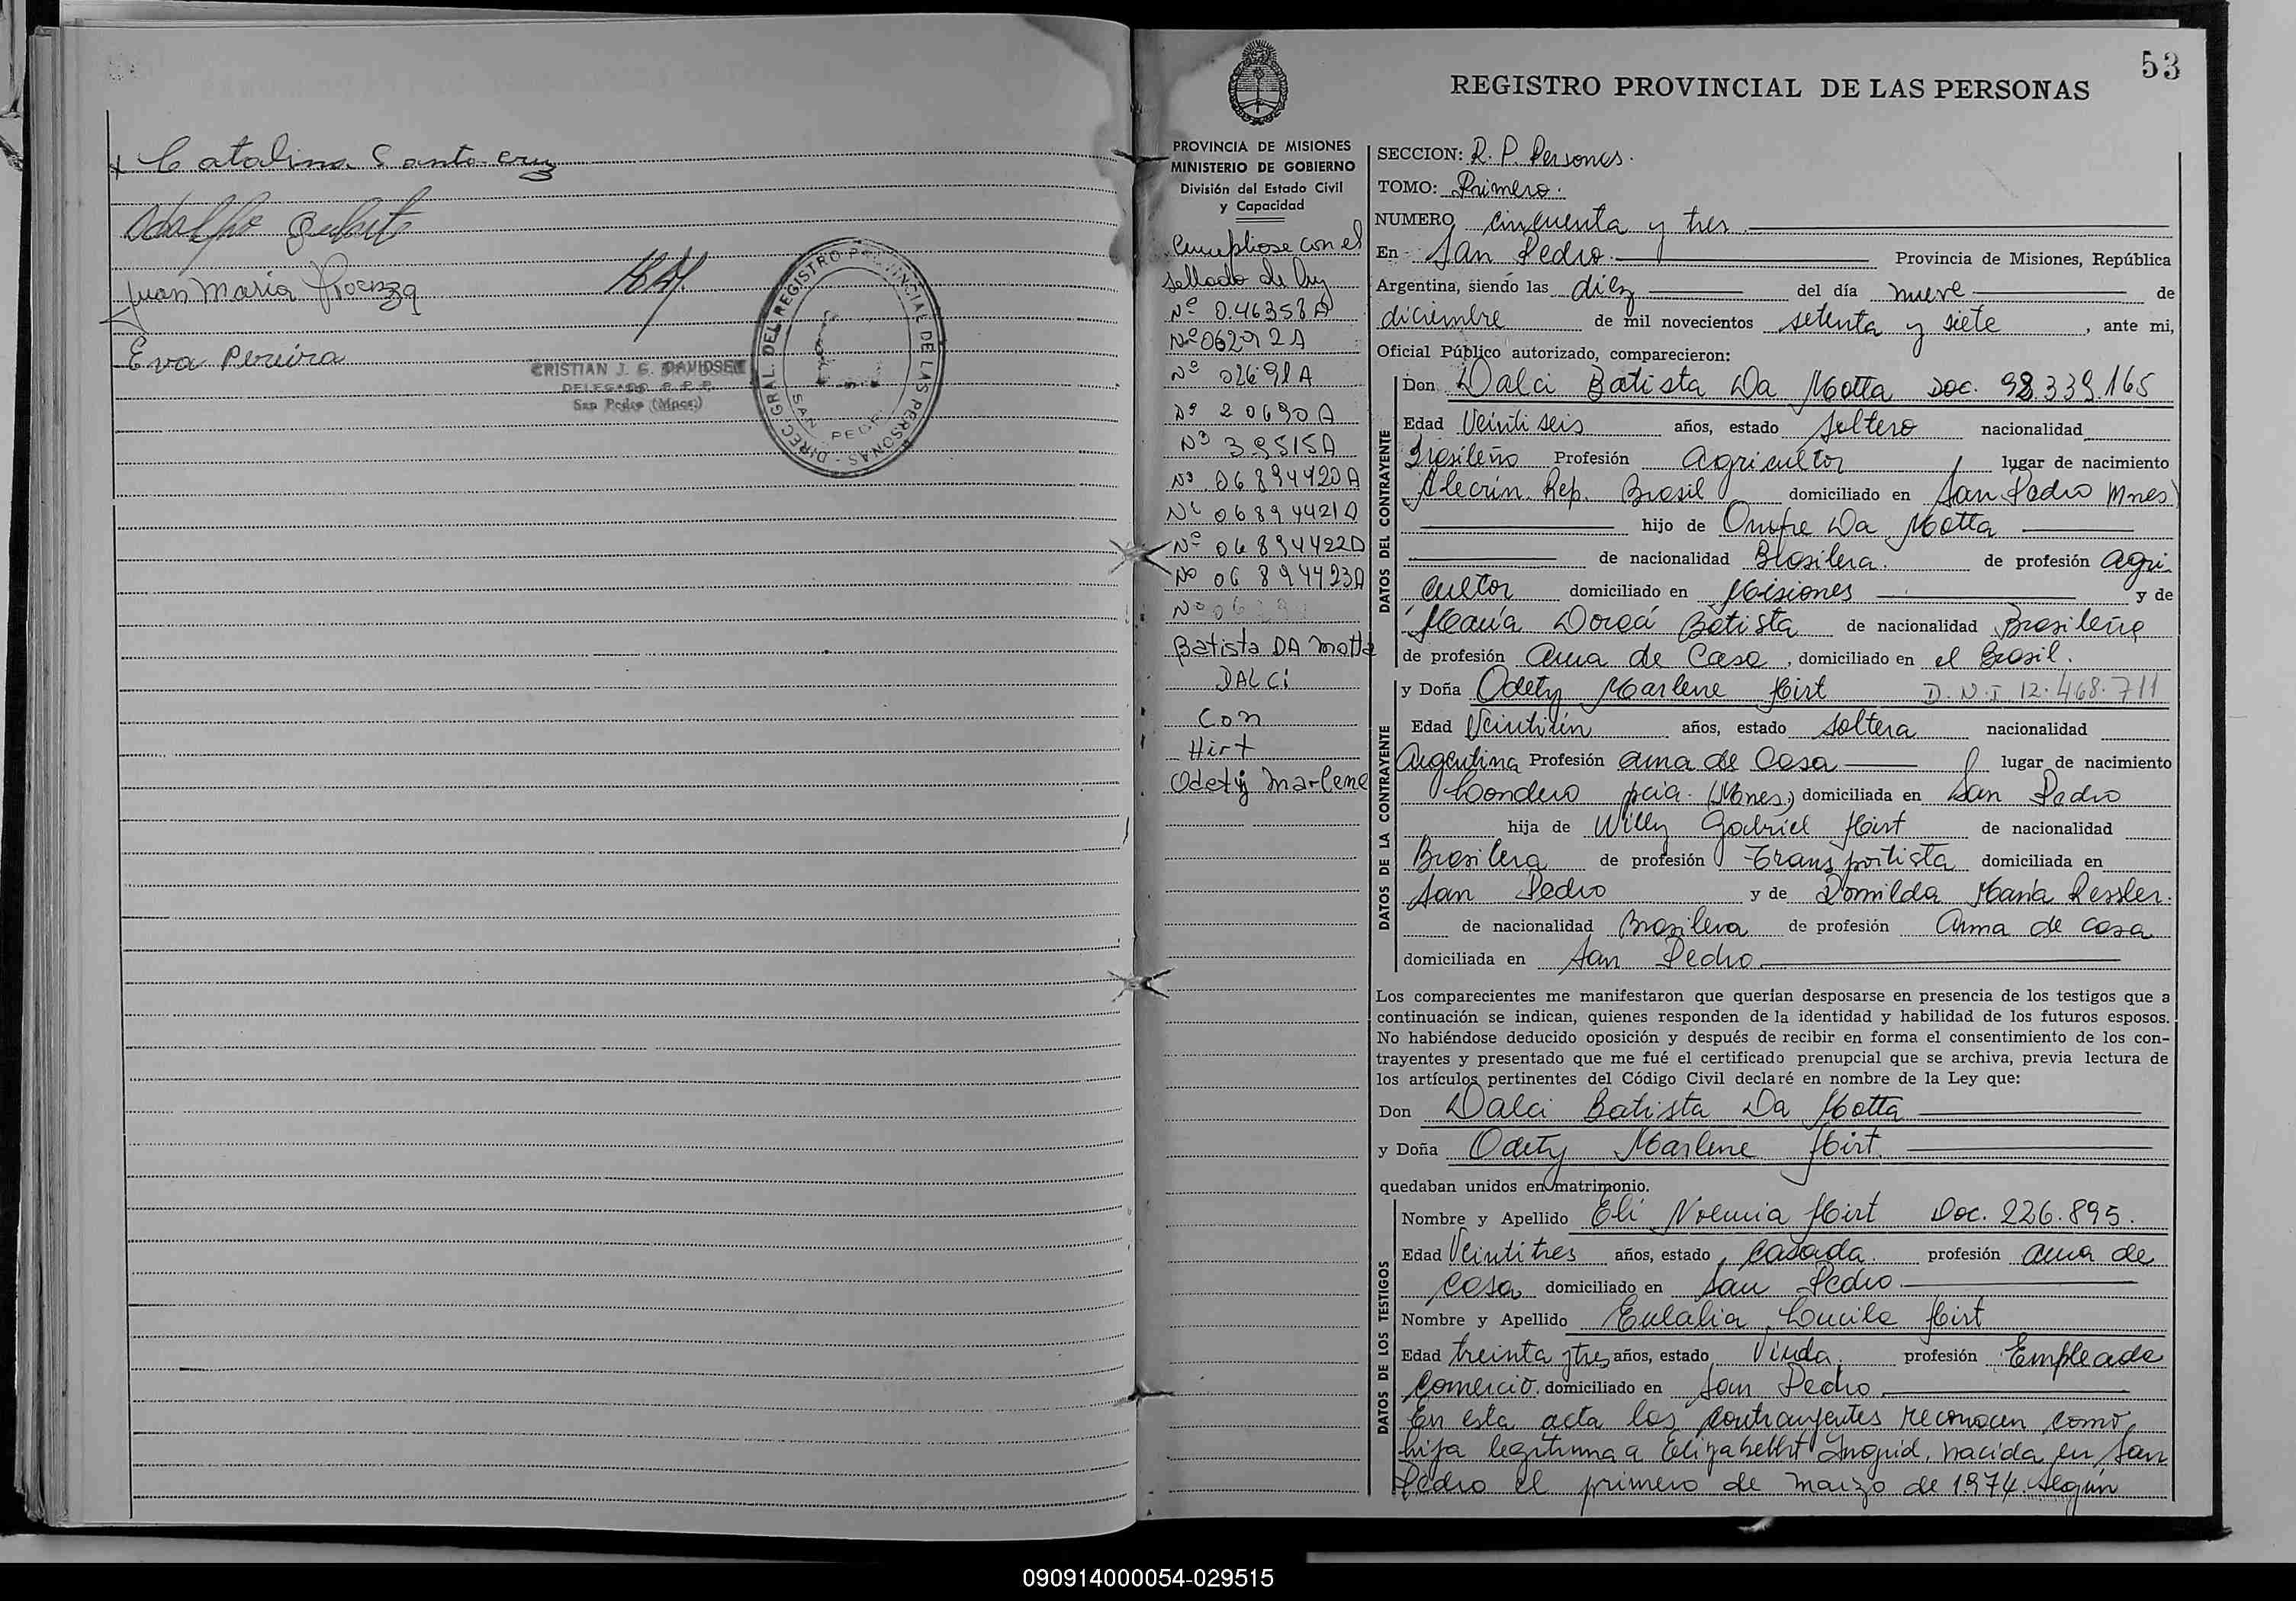 Catalina Santa Cruz
Juan Maria
Eva Pereira
CRISTIAN J. G. DAVIDSEN
DELEGADO R. P. P.
San Pedro (Mnes.)
DIREC. GRAL. DEL REGISTRO PROVINCIAL DE LAS PERSONAS
SAN PEDRO
53
REGISTRO PROVINCIAL DE LAS PERSONAS
PROVINCIA DE MISIONES
MINISTERIO DE GOBIERNO
División del Estado Civil
y Capacidad
Cumpliose con el
sellado de ley
Nº 046358A
Nº 062912A
Nº 02691A
Nº 20690A
Nº 39515A
Nº 06894420A
Nº 06894421A
Nº 06894422A
Nº 06894423A
Batista DA Motta
DALCi
Con
Hirt
Odety Marlene
SECCION: R. P. Personas.
TOMO: Primero.
NUMERO cincuenta y tres
En San Pedro Provincia de Misiones, República
Argentina, siendo las diez del día nueve de
diciembre de mil novecientos setenta y siete, ante mi,
Oficial Público autorizado, comparecieron:
DATOS DEL CONTRAYENTE
Don Dalci Batista Da Motta Doc. 92.339.165
Edad Veintiseis años, estado soltero nacionalidad
Brasileño Profesión Agricultor lugar de nacimiento
Alecrin. Rep. Brasil domiciliado en San Pedro Mnes)
hijo de Onofre Da Motta
de nacionalidad Brasilera. de profesión agri-
cultor domiciliado en Misiones y de
María Batista de nacionalidad Brasileña
de profesión Ama de Casa, domiciliado en el Brasil.
DATOS DE LA CONTRAYENTE
y Doña Odety Marlene Hirt D.N.I 12.468.711
Edad Veintiún años, estado soltera nacionalidad
Argentina Profesión ama de Casa lugar de nacimiento
pcia. (Mnes.) domiciliada en San Pedro
hija de Willy Gabriel Hirt de nacionalidad
Brasilera de profesión Transportista domiciliada en
San Pedro y de Romilda María Ressler.
de nacionalidad Brasilera de profesión Ama de casa
domiciliada en San Pedro
Los comparecientes me manifestaron que querían desposarse en presencia de los testigos que a
continuación se indican, quienes responden de la identidad y habilidad de los futuros esposos.
No habiéndose deducido oposición y después de recibir en forma el consentimiento de los con-
trayentes y presentado que me fué el certificado prenupcial que se archiva, previa lectura de
los artículos pertinentes del Código Civil declaré en nombre de la Ley que:
Don Dalci Batista Da Motta
y Doña Odety Marlene Hirt.
quedaban unidos en matrimonio.
DATOS DE LOS TESTIGOS
Nombre y Apellido Eli Noemia Hirt Doc. 226.895.
Edad Veintitres años, estado Casada profesión ama de
casa domiciliado en San Pedro.
Nombre y Apellido Eulalia Lucila Hirt
Edad treinta y tres años, estado Viuda profesión Empleada
Comercio. domiciliado en San Pedro
En esta acta los contrayentes reconocen como
hija legítima a Elizabetht Ingrid, nacida en San
Pedro el primero de marzo de 1974. según
090914000054-029515